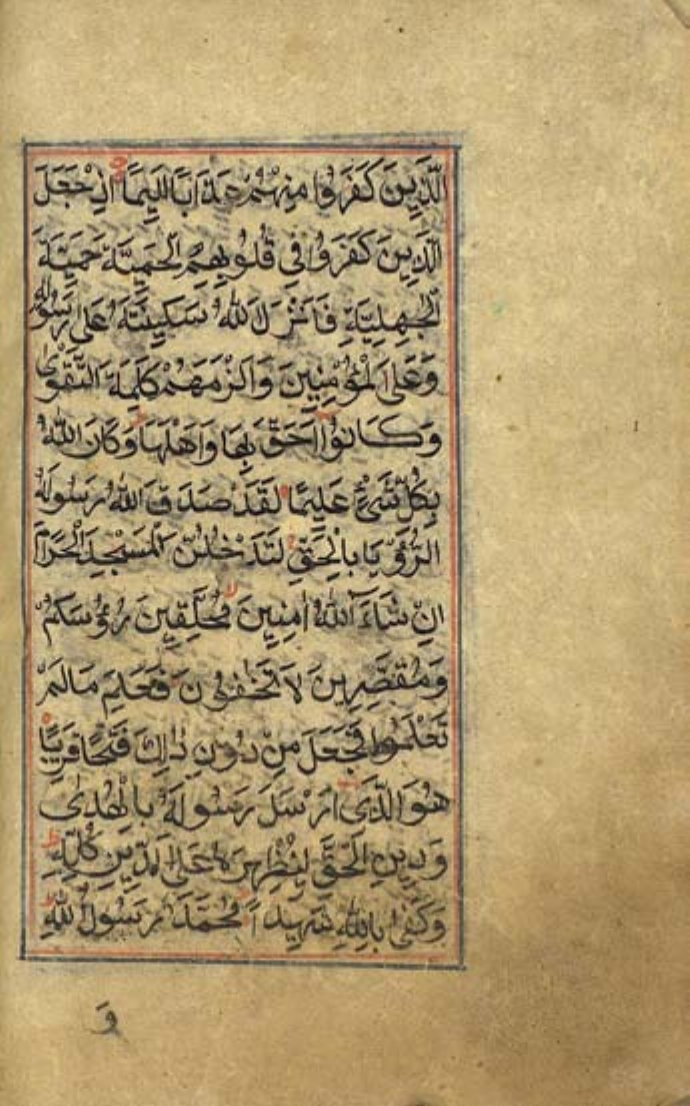 الَّذِينَ كَفَرُوا مِنْهُمْ عَذَابًا اَلِيمًا اِذْ جَعَلَ
الَّذِينَ كَفَرُوا فِي قُلُوبِهِمُ الْحَمِيَّةَ حَمِيَّةَ
الْجٰهِلِيَّةِ فَاَنْزَلَ اللّٰهُ سَكِينَتَهُ عَلٰى رَسُولِهِ
وَعَلَى الْمُؤْمِنِينَ وَاَلْزَمَهُمْ كَلِمَةَ التَّقْوٰى
وَكَانُوٓا اَحَقَّ بِهَا وَاَهْلَهَا وَكَانَ اللّٰهُ
بِكُلِّ شَيْءٍ عَلِيمًا لَقَدْ صَدَقَ اللّٰهُ رَسُولَهُ
الرُّؤْيَا بِالْحَقِّ لَتَدْخُلُنَّ الْمَسْجِدَ الْحَرَامَ
اِنْ شَاءَ اللّٰهُ اٰمِنِينَ مُحَلِّقِينَ رُؤُسَكُمْ
وَمُقَصِّرِينَ لَا تَخَافُونَ فَعَلِمَ مَالَمْ
تَعْلَمُوا فَجَعَلَ مِنْ دُونِ ذٰلِكَ فَتْحًا قَرِيبًا
هُوَ الَّذِٓي اَرْسَلَ رَسُولَهُ بِالْهُدٰى
وَدِينِ الْحَقِّ لِيُظْهِرَهُ عَلَى الدِّينِ كُلِّهِ
وَكَفٰى بِاللّٰهِ شَهِيدًا مُحَمَّدٌ رَسُولُ اللّٰهِ
وَ